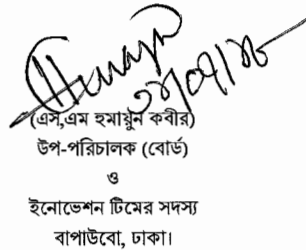 (এস,এম হুমায়ুন কবীর)
উপ-পরিচালক (বোর্ড)
ও
ইনোভেশন টিমের সদস্য
বাপাউবো, ঢাকা।